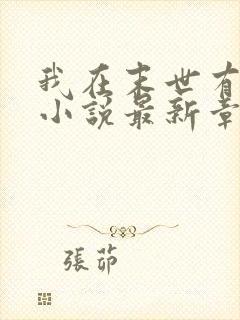 我在末世有
小說最新章
張茆